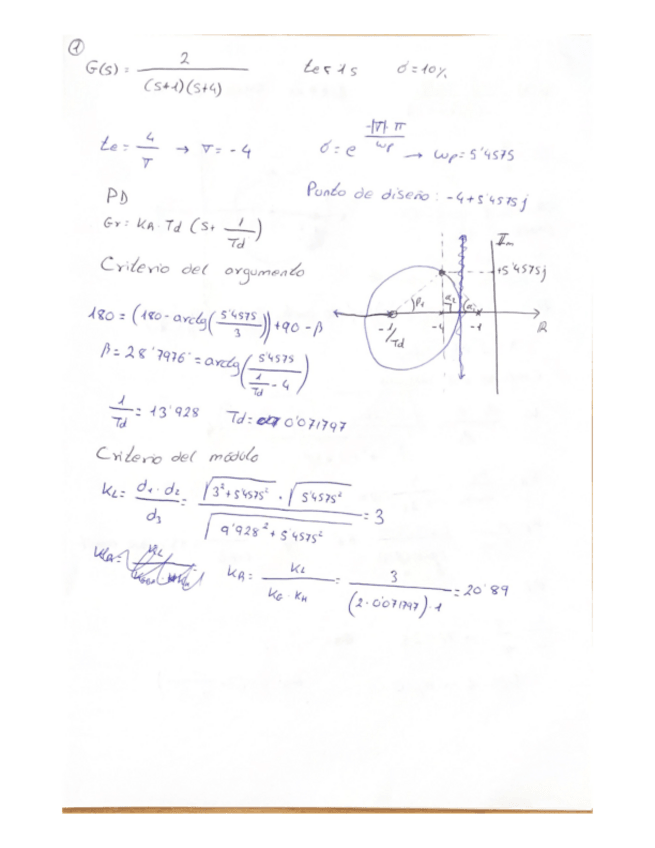 ①
G(s) = 2 / ((s+1)(s+4))   te ≤ 1s   σ = 10%
te = 4/σ → σ = -4   σ = e^(-|σ|·π / ωp) → ωp = 5'4575
PD   Punto de diseño: -4+5'4575j
Gr = KA·Td (s + 1/Td)
Criterio del argumento
180 = (180 - arctg(5'4575/3)) + 90 - β
β = 28'7976 = arctg(5'4575 / (1/Td - 4))
1/Td = 13'928   Td = 0'071797
Im
+5'4575j
β1
-1/Td   -4   -1   R
Criterio del módulo
KL = d1·d2 / d3 = √(3²+5'4575²) · √(5'4575²) / √(9'928²+5'4575²) = 3
KA = KL / (KG·KH) = 3 / ((2·0'071797)·1) = 20'89